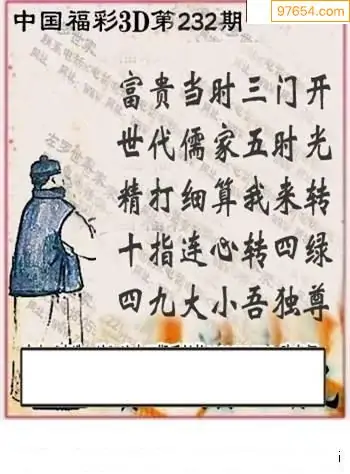 97654.com
中国福彩3D第232期
富贵当时三门开
世代儒家五时光
精打细算我来转
十指连心转四绿
四九大小吾独尊
i